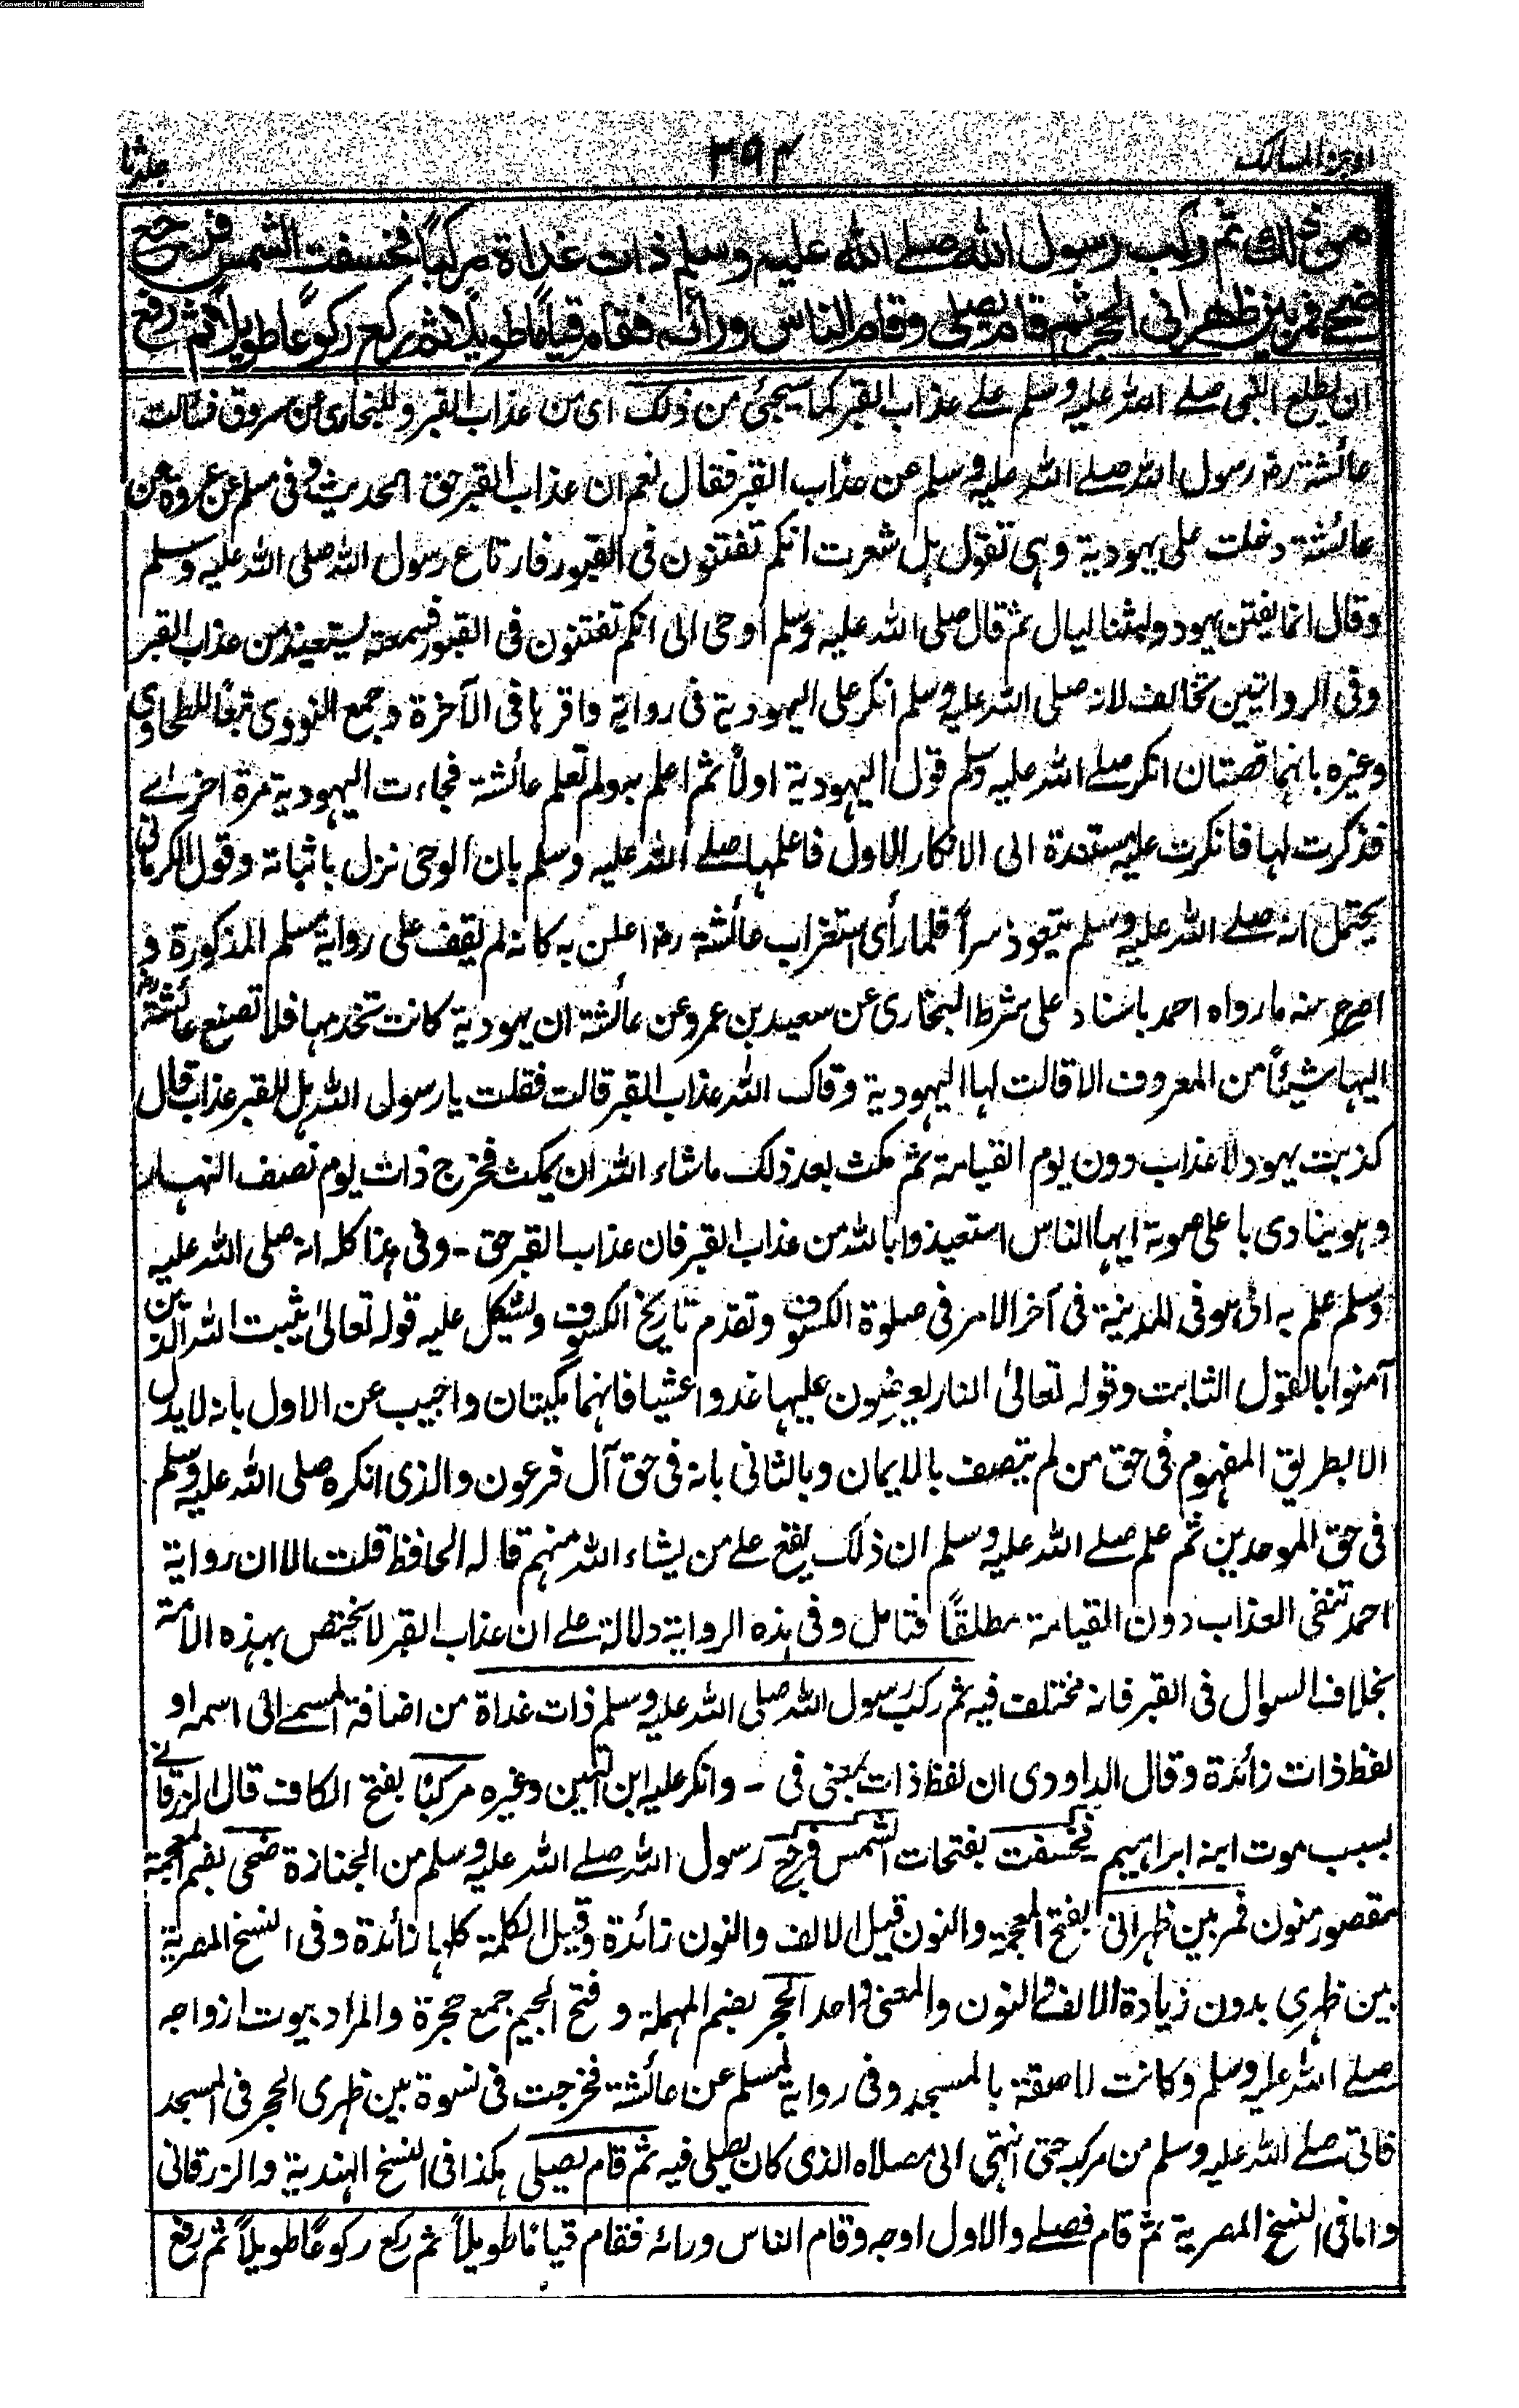 Converted by Tiff Combine - unregistered
اوجز المسالك ٣٩٢ جلد ثا
من ذلك ثم ركب رسول الله صلى الله عليه وسلم ذات غداة مركبا فخسفت الشمس فرجع
ضحى فمر بين ظهراني الحجر ثم قام يصلي وقام الناس وراءه فقام قياما طويلا ثم ركع ركوعا طويلا ثم رفع
ان يطلع النبي صلے الله عليه وسلم علے عذاب القبر كما سيجئ من ذلك اى من عذاب القبر وللبخارى عن مسروق فسالت
عائشة رض رسول الله صلے الله عليه وسلم عن عذاب القبر فقال نعم ان عذاب القبر حق الحديث وفى مسلم عن عروة عن
عائشة دخلت على يهودية وهى تقول هل شعرت انكم تفتنون فى القبور فارتاع رسول الله صلى الله عليه وسلم
وقال انما يفتن يهود ولبثنا ليال ثم قال صلى الله عليه وسلم اوحى الى انكم تفتنون فى القبور فسمعته يستعيذ من عذاب القبر
وفى الروايتين تخالف لانه صلى الله عليه وسلم انكر على اليهودية فى رواية واقرها فى الآخرة وجمع النووى تبعًا للطحاوى
وغيره بانهما قصتان انكر صلے الله عليه وسلم قول اليهودية اولًا ثم اعلم به ولم تعلم عائشة فجاءت اليهودية مرة اخرے
فذكرت لها فانكرت عليه مستندة الى الانكار الاول فاعلمها صلے الله عليه وسلم بان الوحى نزل باثباتة وقول الكرمانى
يحتمل انه صلے الله عليه وسلم يتعوذ سرًا فلما رأى استغراب عائشة رض اعلن به كانه لم يقف على رواية مسلم المذكورة و
اصرح منه ما رواه احمد باسناد على شرط البخارى عن سعيد بن عمرو عن عائشة ان يهودية كانت تخدمها فلا تصنع عائشة رض
اليها شيئًا من المعروف الا قالت لها اليهودية وقاك الله عذاب القبر قالت فقلت يا رسول الله هل للقبر عذاب قال
كذبت يهود لا عذاب دون يوم القيامة ثم مكث بعد ذلك ما شاء الله ان يمكث فخرج ذات يوم نصف النهار
وهو ينادى باعلى صوتة ايها الناس استعيذوا بالله من عذاب القبر فان عذاب القبر حق - وفى هذا كله انه صلى الله عليه
وسلم علم به اى هو فى المدينة فى آخر الامر فى صلوة الكسوف وتقدم تاريخ الكسوف ولشكل عليه قوله تعالىٰ يثبت الله الذين
آمنوا بالقول الثابت وقوله تعالىٰ النار يعرضون عليها غدوا وعشيا فانهما مكيتان واجيب عن الاول بانه لا يدل
الا بطريق المفهوم فى حق من لم يتصف بالايمان وبالثانى بانه فى حق آل فرعون والذى انكره صلى الله عليه وسلم
فى حق الموحدين ثم علم صلے الله عليه وسلم ان ذلك يقع علے من يشاء الله منهم قاله الحافظ قلت الا ان رواية
احمد تنفى العذاب دون القيامة مطلقًا فتامل وفى هذه الرواية دلالة علے ان عذاب القبر لا يختص بهذه الامة
بخلاف السوال فى القبر فانه مختلف فيه ثم ركب رسول الله صلى الله عليه وسلم ذات غداة من اضافة المسمے الى اسمه او
لفظ ذات زائدة وقال الداودى ان لفظ ذات بمعنى فى - وانكر عليه ابن التين وغيره مركبًا بفتح الكاف قال الزرقانے
بسبب موت ابنه ابراهيم فخسفت بفتحات الشمس فرجع رسول الله صلے الله عليه وسلم من الجنازة ضحى بضم المعجمة
مقصور منون فمر بين ظهرانى بفتح المعجمة والنون قيل الالف والنون زائدة وقيل الكلمة كلها زائدة وفى النسخ المصرية
بين ظهرى بدون زيادة الالف والنون والمعنى واحد الحجر بضم المهملة وفتح الجيم جمع حجرة والمراد بيوت ازواجه
صلے الله عليه وسلم وكانت لاصقة بالمسجد وفى رواية لمسلم عن عائشة فخرجت فى نسوة بين ظهرى الحجر فى المسجد
فاتى صلے الله عليه وسلم من مركبه حتى انتهى الى مصلاه الذى كان يصلى فيه ثم قام يصلى هكذا فى النسخ الهندية والزرقانى
واما فى النسخ المصرية ثم قام فصلے والاول اوجه وقام الناس ورائه فقام قيامًا طويلًا ثم ركع ركوعًا طويلًا ثم رفع